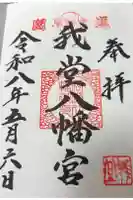 奉拝
我堂八幡宮
令和八年五月六日